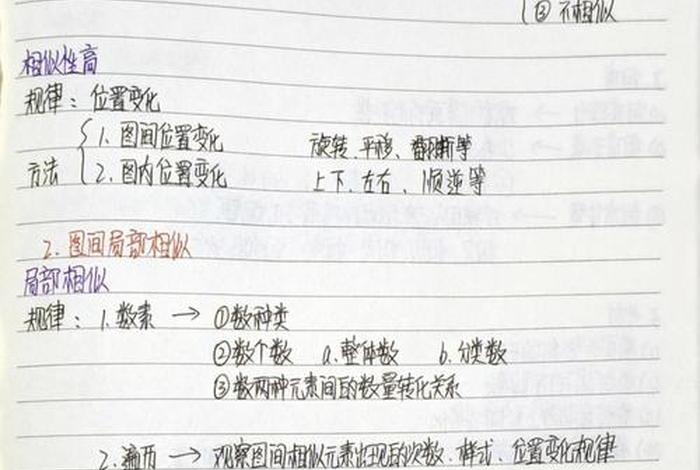 ③ 不相似
相似性高
规律：位置变化
方法 { 1. 图间位置变化 旋转、平移、翻折等
2. 图内位置变化 上下、左右、顺逆等
2. 图间局部相似
局部相似
规律：1. 数素 → ①数种类
②数个数 a. 整体数 b. 分类数
③数两种元素间的数量转化关系
2. 遍历 → 观察图间相似元素出现的次数、样式、位置变化规律